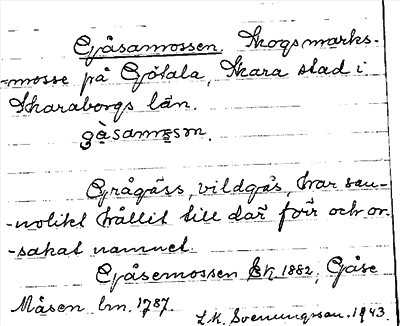 Gåsamossen. Skogsmarks-
-mosse på Götala, Skara stad i
Skaraborgs län.
gàsamåsən.
Grågäss, vildgås, har san-
-nolikt hållit till där förr och or-
-sakat namnet.
Gåsemossen Ek, 1882; Gåse
Måsen lm. 1787.
L.K. Svenungsson. 1943.